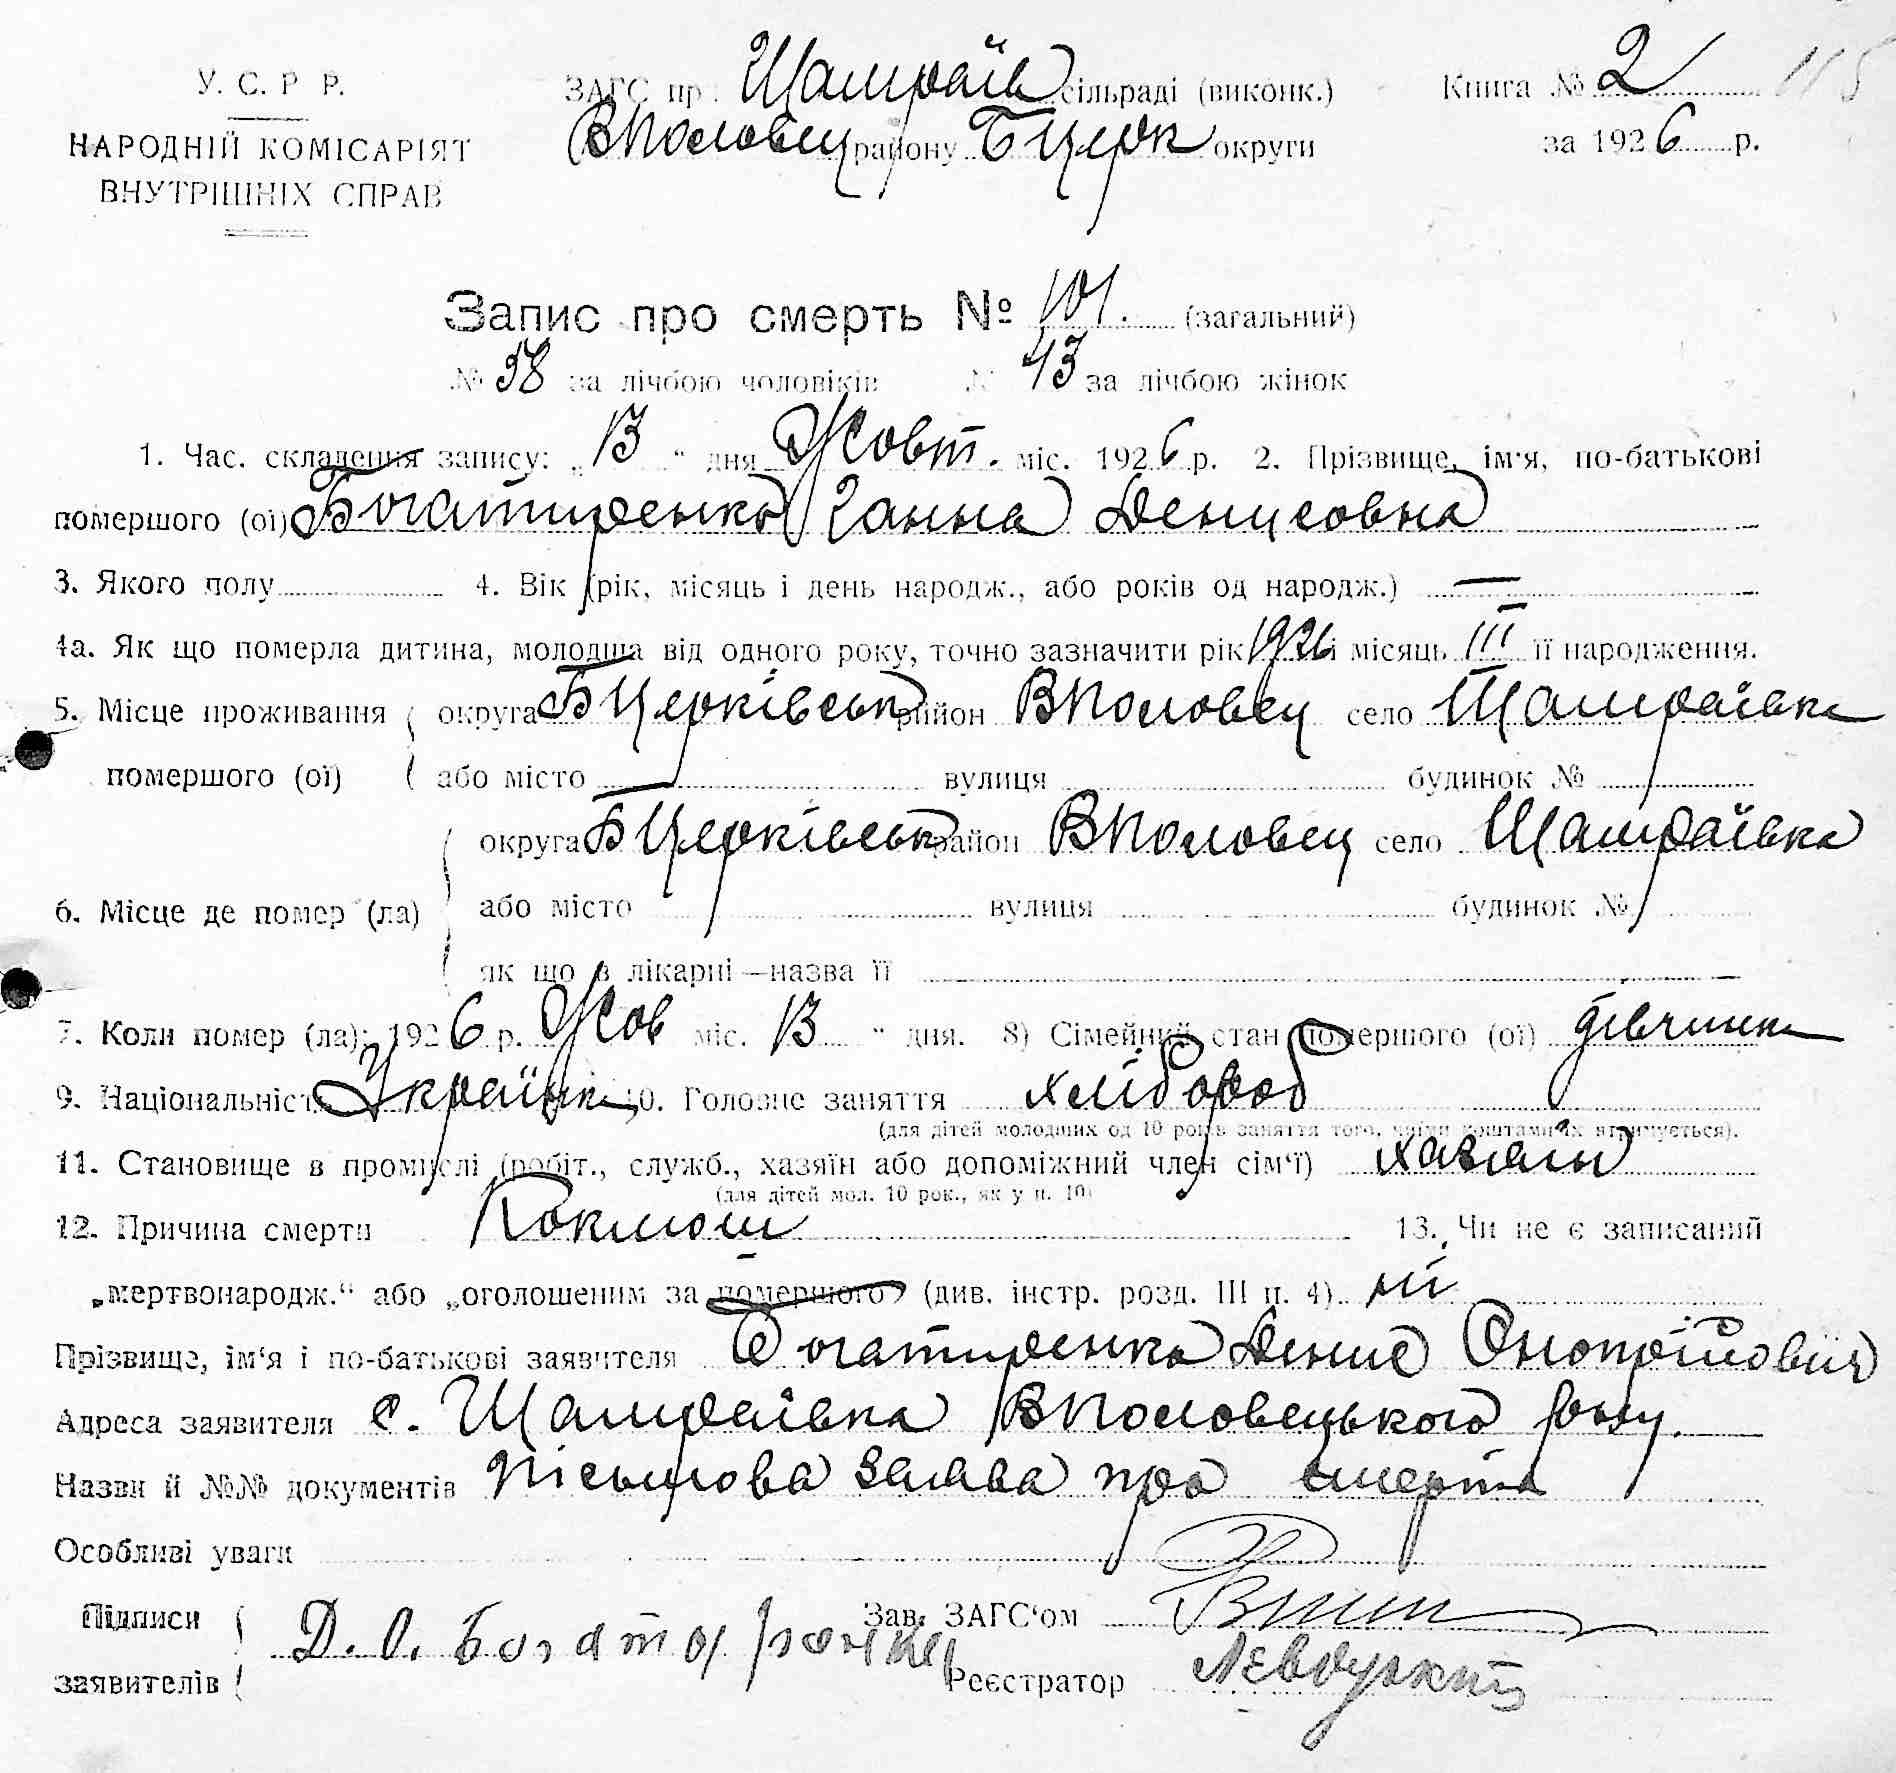 У. С. Р Р.
НАРОДНІЙ КОМІСАРІЯТ
ВНУТРІШНІХ СПРАВ
ЗАГС пр. Шамраїв сільраді (виконк.)
ВПоловец району БЦерк округи
Книга № 2
за 1926 р.
115
Запис про смерть № 101. (загальний)
№ 58 за лічбою чоловіків № 43 за лічбою жінок
1. Час. складення запису: „13“ дня Жовт. міс. 1926 р. 2. Прізвище, ім'я, по-батькові
помершого (ої) Богатиренко Ганна Денисовна
3. Якого полу 4. Вік (рік, місяць і день народж., або років од народж.) —
4а. Як що померла дитина, молодша від одного року, точно зазначити рік 1926 і місяць III її народження.
5. Місце проживання округа БЦерківськ район ВПоловец село Шамраївка
помершого (ої) або місто вулиця будинок №
округа БЦерківськ район ВПоловец село Шамраївка
6. Місце де помер (ла) або місто вулиця будинок №
як що в лікарні—назва її
7. Коли помер (ла): 1926 р. Жов міс. 13 “ дня. 8) Сімейний стан помершого (ої) дівчинка
9. Національність Українк 10. Головне заняття хлібороб
(для дітей молодших од 10 років заняття того, чиїми коштами їх втримується).
11. Становище в промислі (робіт., служб., хазяїн або допоміжний член сім'ї) хазяїн
(для дітей мол. 10 рок., як у п. 10)
12. Причина смерти Коклюш 13. Чи не є записаний
„мертвонародж.“ або „оголошеним за помершого“ (див. інстр. розд. III п. 4) ні
Прізвище, ім'я і по-батькові заявителя Богатиренко Денис
Адреса заявителя с. Шамраївка ВПоловецького рону.
Назви й №№ документів Пісьмова заява про смерть
Особливі уваги
Підписи Зав. ЗАГС'ом
заявителів Д. О. Богатыренко Реєстратор